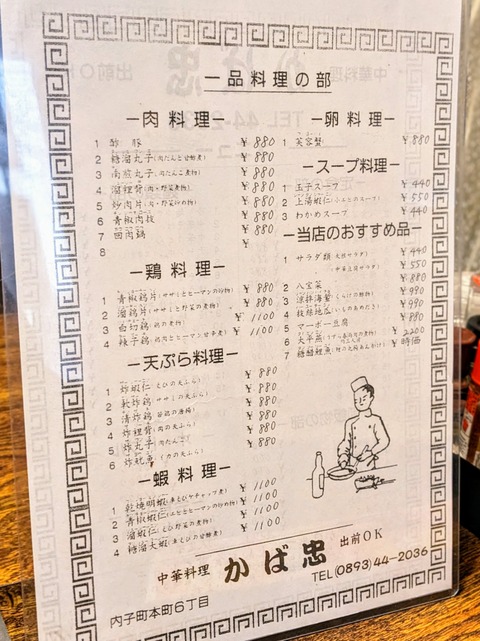 一品料理の部
ー肉料理ー
1 酢豚 ¥880
2 糖溜丸子(肉だんご甘酢煮) ¥880
3 南煎丸子(肉だんご煮物) ¥880
4 溜裡脊(肉と野菜煮物) ¥880
5 炒肉片(肉と野菜炒め物) ¥880
6 青椒肉枝 ¥880
7 回肉鍋 ¥880
8 ¥
ー鶏料理ー
1 青椒鶏片(ササミとピーマンの炒物) ¥880
2 溜鶏片(ササミと野菜の煮物) ¥880
3 白切鶏(鶏の煮物) ¥1100
4 辣子鶏(鶏肉とピーマン甘辛煮) ¥1100
ー天ぷら料理ー
1 炸蝦仁(えびの天ぷら) ¥880
2 軟炸鶏(ササミの天ぷら) ¥880
3 清炸鶏(骨付の唐揚) ¥880
4 炸裡脊(肉の天ぷら) ¥880
5 炸丸子(肉だんご) ¥880
6 炸魷魚(イカの天ぷら) ¥880
ー蝦料理ー
1 乾焼明蝦(車えびケチャップ煮) ¥1100
2 青椒蝦仁(エビとピーマンの炒め物) ¥1100
3 溜蝦仁(えび野菜の煮物) ¥1100
4 糖溜大蝦(車えびの甘酢煮) ¥1100
ー卵料理ー
1 芙蓉蟹 ¥880
ースープ料理ー
1 玉子スープ ¥440
2 上湯蝦仁(エビのスープ) ¥550
3 わかめスープ ¥440
ー当店のおすすめ品ー
1 サラダ類 ¥440
¥550
2 八宝菜 ¥880
3 涼拌海蜇(くらげの酢物) ¥990
4 抜絲地瓜(いものあめだき) ¥990
5 マーボー豆腐 ¥880
6 太平燕 ¥2200
7 糖醋鯉魚(鯉の丸揚あんかけ) ¥時価
中華料理 かば忠 出前OK
TEL(0893)44-2036
内子町本町6丁目